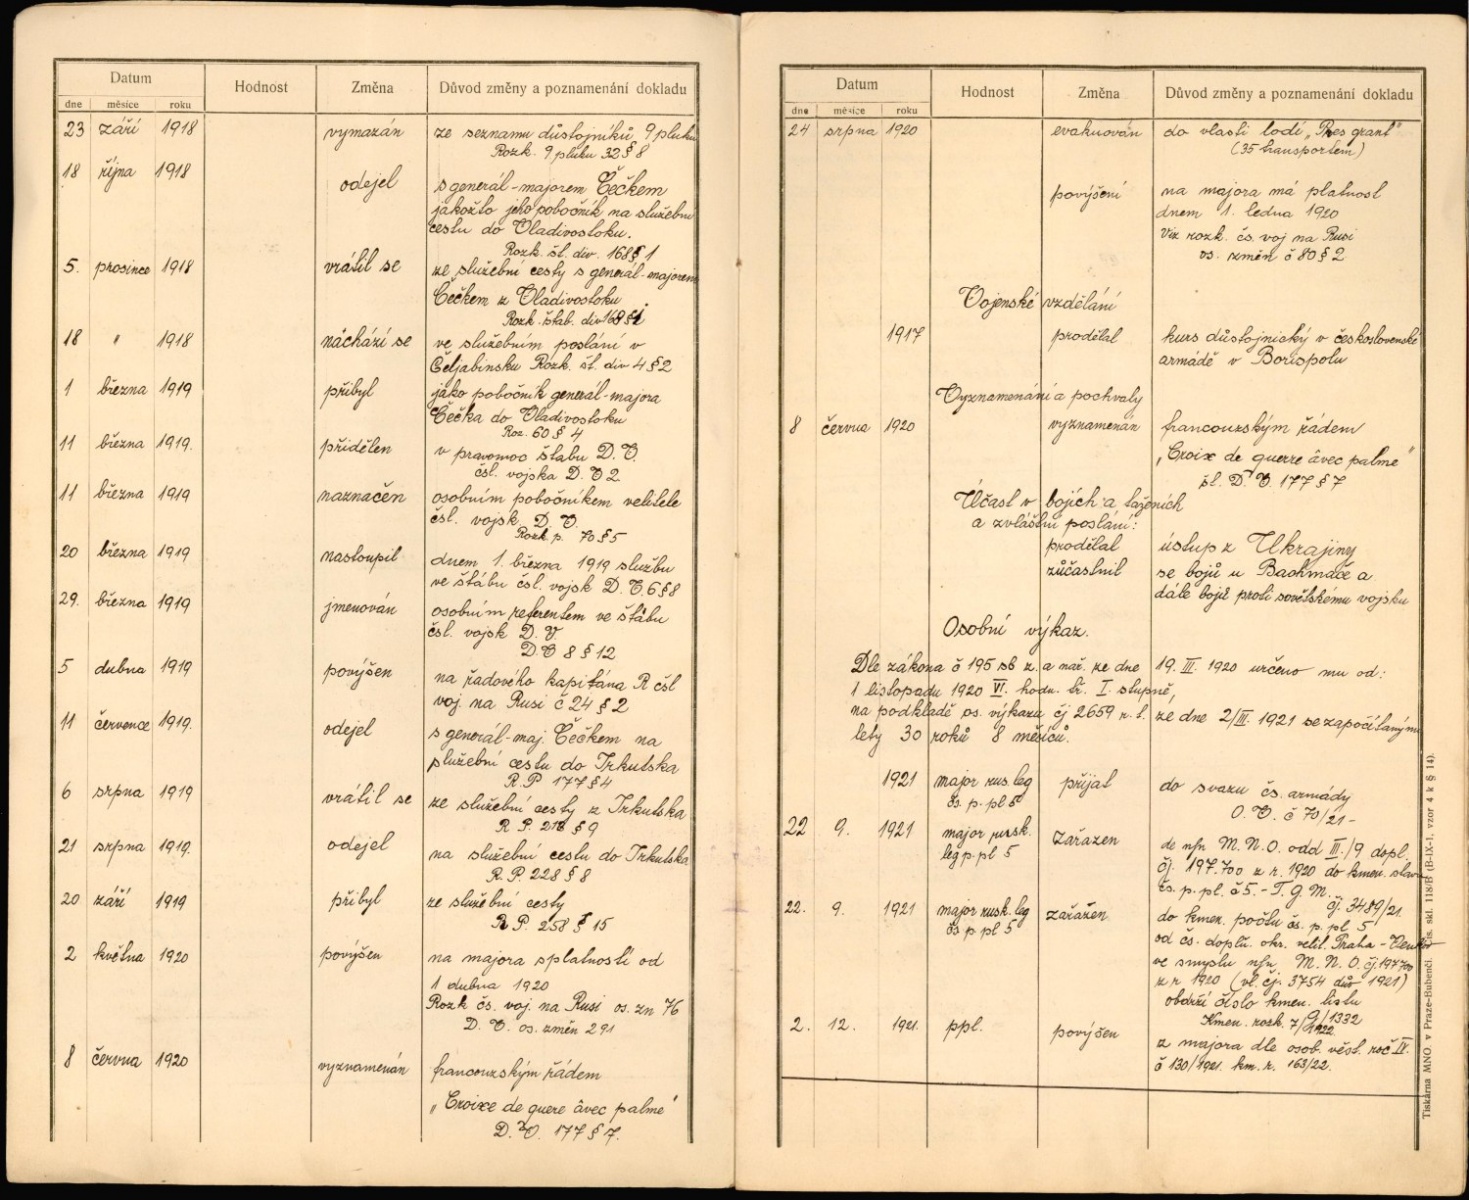 Datum
Hodnost
Změna
Důvod změny a poznamenání dokladu
dne měsíce roku
23 září 1918 vymazán ze seznamu důstojníků 9 pluku
Rozk. 9 pluku 32 § 8
18 října 1918 odejel s generál-majorem Čečkem
jakožto jeho pobočník na služební
cestu do Vladivostoku.
Rozk. št. div. 168 § 1
5. prosince 1918 vrátil se ze služební cesty s generál-majorem
Čečkem z Vladivostoku
Rozk. štab. div 168 § 1
18 " 1918 náchází se ve služebním poslání v
Čeljabinsku Rozk. št. div 4 § 2
1 března 1919 přibyl jako pobočník generál-majora
Čečka do Vladivostoku
Roz. 60 § 4
11 března 1919. přidělen v pravomoc štabu D. V.
čsl. vojska D. V 2
11 března 1919 naznačen osobním pobočníkem velitele
čsl. vojsk D. V.
Rozk p. 70 § 5
20 března 1919 nastoupil dnem 1. března 1919 službu
ve štábu čsl. vojsk D. V. 6 § 8
29. března 1919 jmenován osobním referentem ve štábu
čsl. vojsk D. V
D V 8 § 12
5 dubna 1919 povýšen na řadového kapitána R čsl
voj. na Rusi č 24 § 2
11 července 1919. odejel s generál-maj. Čečkem na
služební cestu do Irkutska
R. P 177 § 4
6 srpna 1919 vrátil se ze služební cesty z Irkutska
R P. 218 § 9
21 srpna 1919. odejel na služební cestu do Irkutska
R. P. 228 § 8
20 září 1919 přibyl ze služební cesty
R P. 258 § 15
2 května 1920 povýšen na majora s platností od
1 dubna 1920
Rozk čs. voj. na Rusi os. zn 76
D. V. os. změn 291
8 června 1920 vyznamenán francouzským řádem
„Croixe de quere âvec palmé"
D. V. 177 § 7.
Datum
Hodnost
Změna
Důvod změny a poznamenání dokladu
dne měsíce roku
24 srpna 1920 evakuován do vlasti lodí „Pres grant"
(35 transportem)
povýšení na majora má platnost
dnem 1. ledna 1920
Viz rozk. čs. voj na Rusi
os. změn č 80 § 2
Vojenské vzdělání
1917 prodělal kurs důstojnický v československé
armádě v Borispolu
Vyznamenání a pochvaly
8 června 1920 vyznamenán francouzským řádem
„Croix de querre âvec palmé"
št. D V 177 § 7
Účast v bojích a taženích
a zvláštní poslání:
prodělal ústup z Ukrajiny
zůčastnil se bojů u Bachmače a
dále bojů proti sovětskému vojsku
Osobní výkaz.
Dle zákona č 195 sb z. a nař. ze dne 19. III. 1920 určeno mu od:
1 listopadu 1920 VI. hodn. tř. I. stupně,
na podkladě os. výkazu čj 2659 r. l. ze dne 2/III. 1921 se započítanými
lety 30 roků 8 měsíců.
1921 major rus. leg přijat do svazu čs. armády
čs. p. pl 5 O. V. č 70/21 -
22 9. 1921 major rusk. Zařazen de nfn M. N. O. odd III./9 dopl.
leg p. pl 5 čj. 197.700 z r. 1920 do kmen. stavu
čs. p. pl. č 5. - T. G M.
čj. 3489/21.
22. 9. 1921 major rusk. leg zařažen do kmen. počtu čs. p. pl 5
čs p pl 5 od čs. doplň. okr. velit. Praha - Venkov
ve smyslu nfn M. N. O. čj. 197700
z r 1920 (vl. čj. 3754 1921)
obdrží číslo kmen. listu
Kmen. rozk. 7/9/1332
1922
2. 12. 1921. ppl. povýšen z majora dle osob. věst. roč IV.
č 130/1921. km. r. 163/22.
Tiskárna MNO. v Praze-Bubenči. Čis. skl. 118/B (B-IX-1, vzor 4 k § 14).